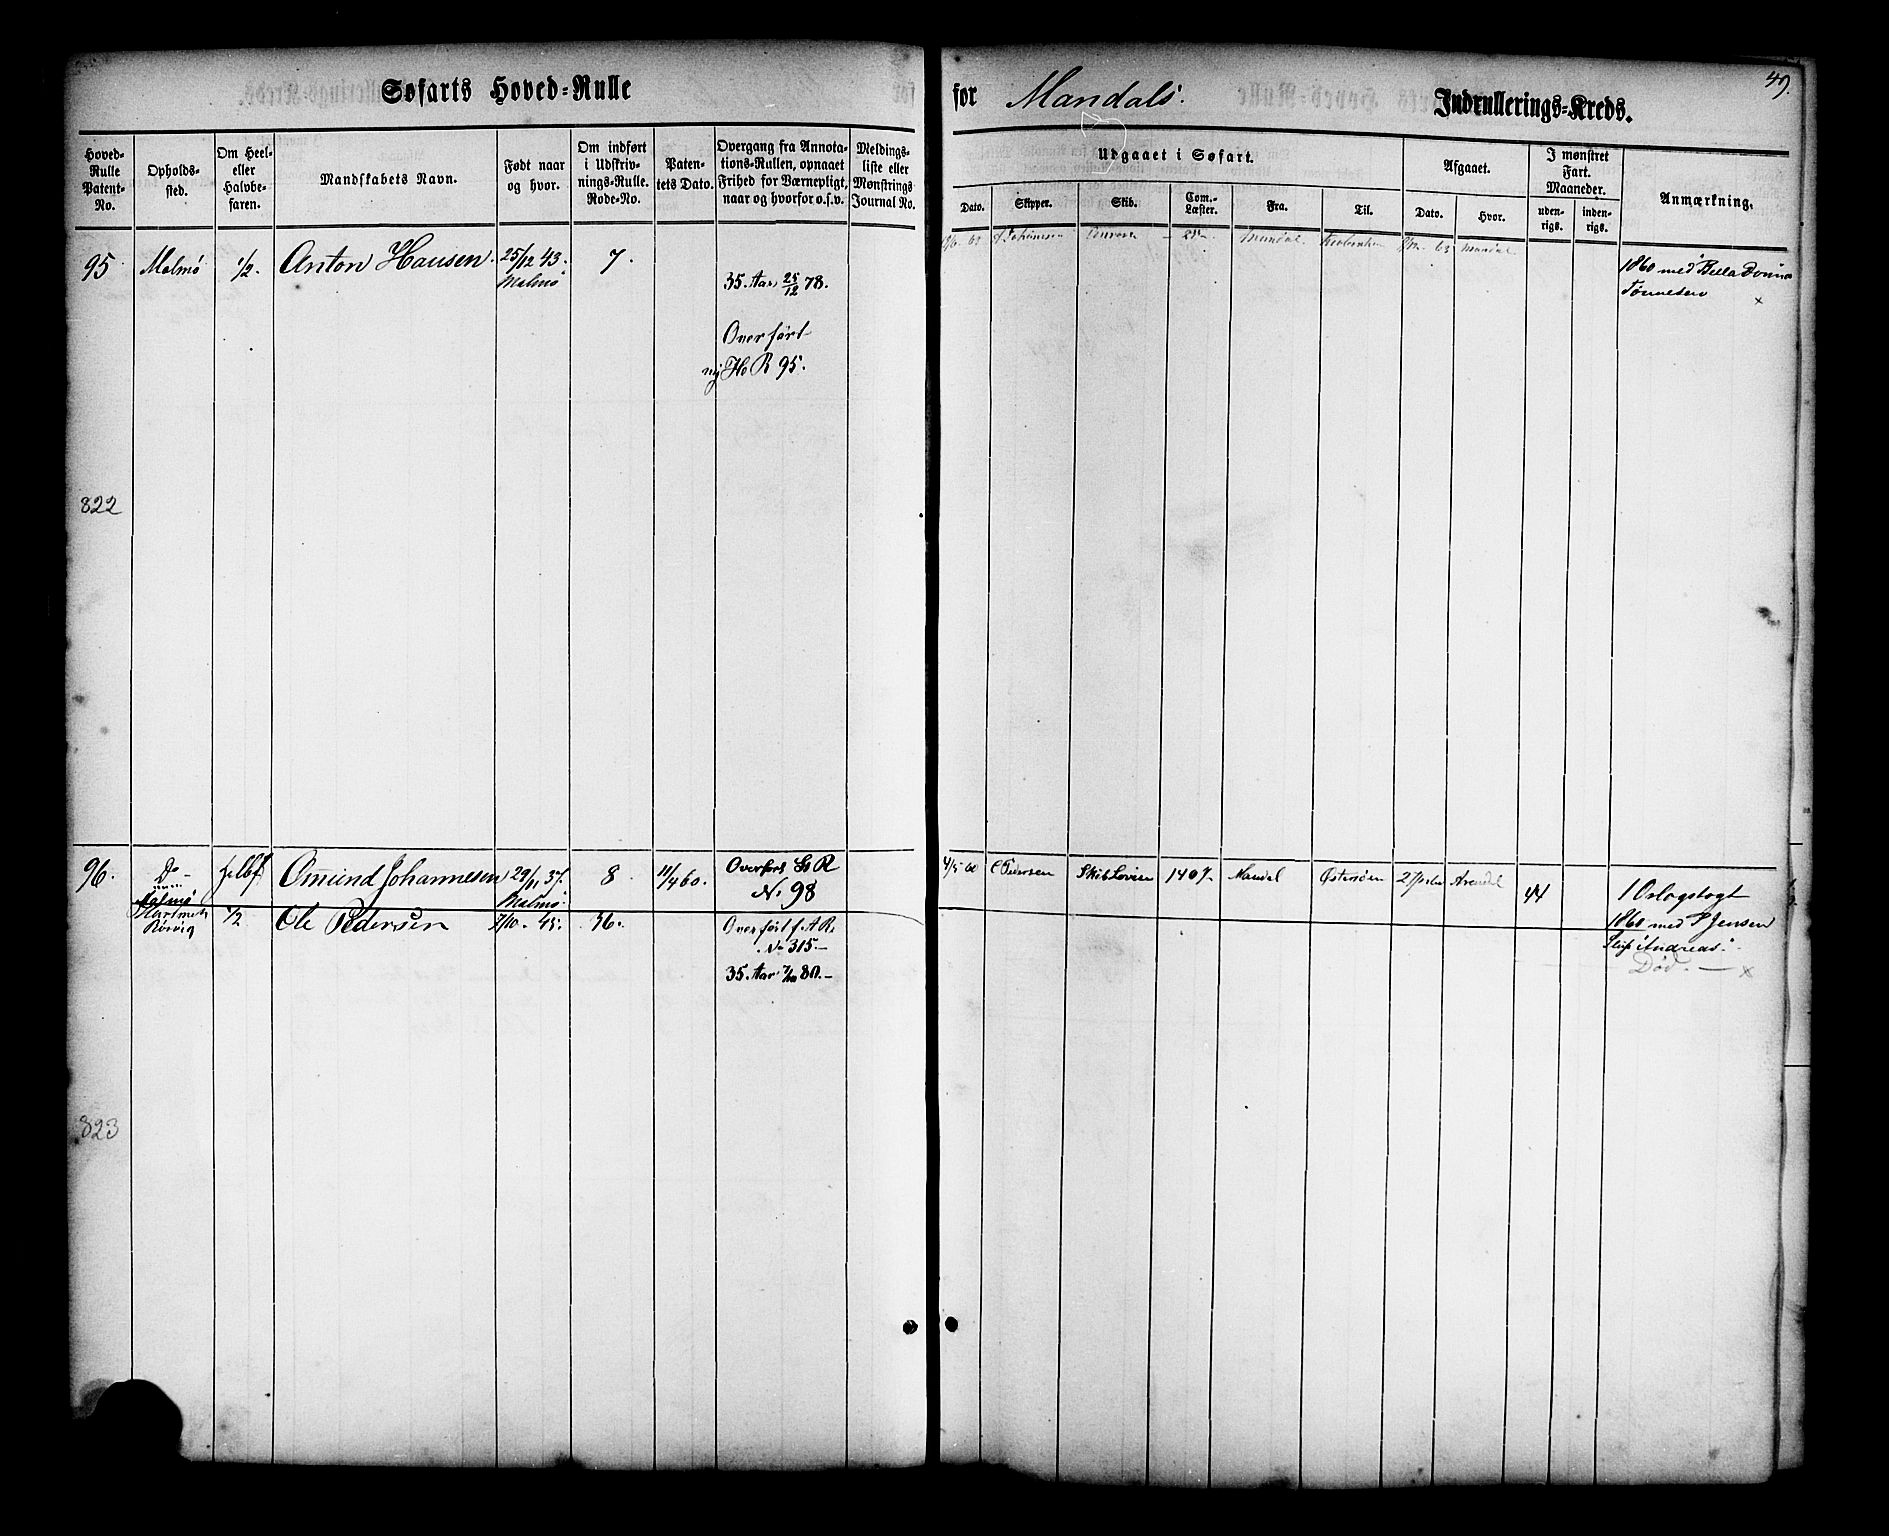 Søfarts Hoved-Rulle
for Mandals.
Indrullerings-Kreds.
49.
Hoved-Rulle Patent-No.
Opholds-sted.
Om Heel- eller Halvbe-faren.
Mandskabets Navn.
Født naar og hvor.
Om indført i Udskriv-nings-Rulle. Rode-No.
Paten-tets Dato.
Overgang fra Annota-tions-Rullen, opnaaet Frihed for Værnepligt, naar og hvorfor o.s.v.
Meldings-liste eller Mønstrings Journal No.
Udgaaet i Søfart.
Dato.
Skipper.
Skib.
Com.-Læster.
Fra.
Til.
Afgaaet.
Dato.
Hvor.
I mønstret Fart. Maaneder.
uden-rigs.
inden-rigs.
Anmærkning.
95 Malmø 1/2. Anton Hansen. 25/12 43. 7.
Malmø
35. Aar 25/12 78.
Overført
ny Ho R 95.
Mandal
63 Mandal
1860 med Bella Donna
Tønnesen
×
822
96. Do Omund Johannesen 29/11 37. 8. 11/4 60. Overført H R
Malmø Malmø No 98
4/5 60 Pedersen Skib 140 Mandal Østersøen Arendal 44 1 Orlogstogt
1/2 Ole Pedersen 7/10. 45. 36. Overført f. A R.
No 315.
35. Aar 7/10 80.
1860 med P Jensen
"Andreas".
Død. ×
823